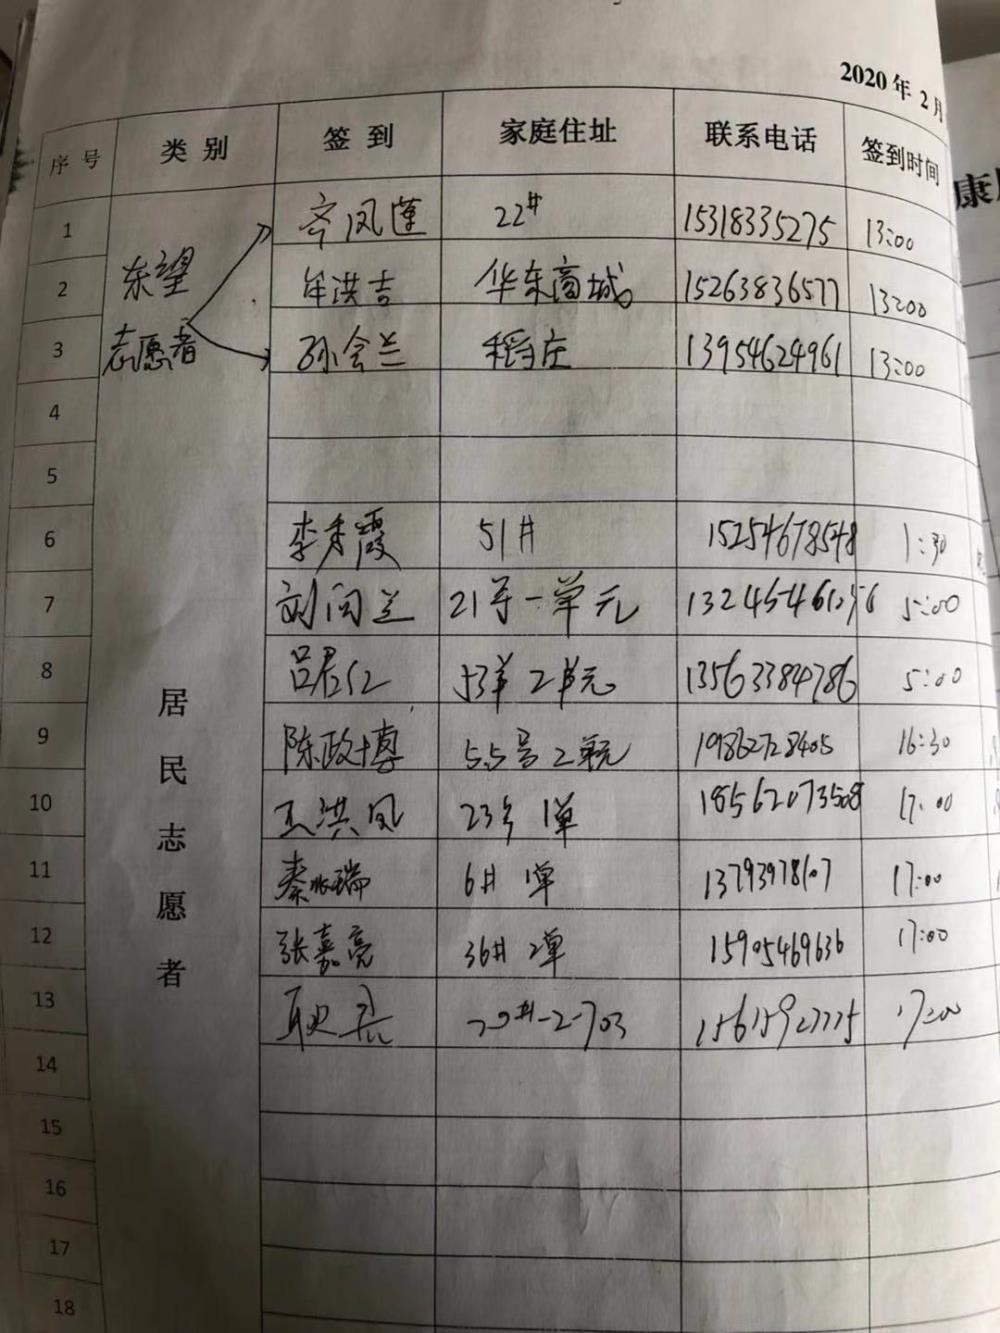 2020年2月
序号 类别 签到 家庭住址 联系电话 签到时间
1 齐凤莲 22# 15318335275 13:00
东望
2 牟洪吉 华东商城 15263836577 13:00
志愿者
3 孙会兰 稻庄 13954624961 13:00
4
5
6 李秀霞 51# 15254678548 1:30
7 刘闵兰 21号一单元 5:00
8 吕居仁 53单2单元 13563384786 5:00
居民志愿者
9 陈政博 55号2单元 19862728405 16:30
10 王洪凤 23号 1单 18562073508 17:00
11 秦兆瑞 6# 1单 13793978107 17:00
12 张嘉亮 36# 2单 15905469636 17:00
13 #-2-703 17:00
14
15
16
17
18
康